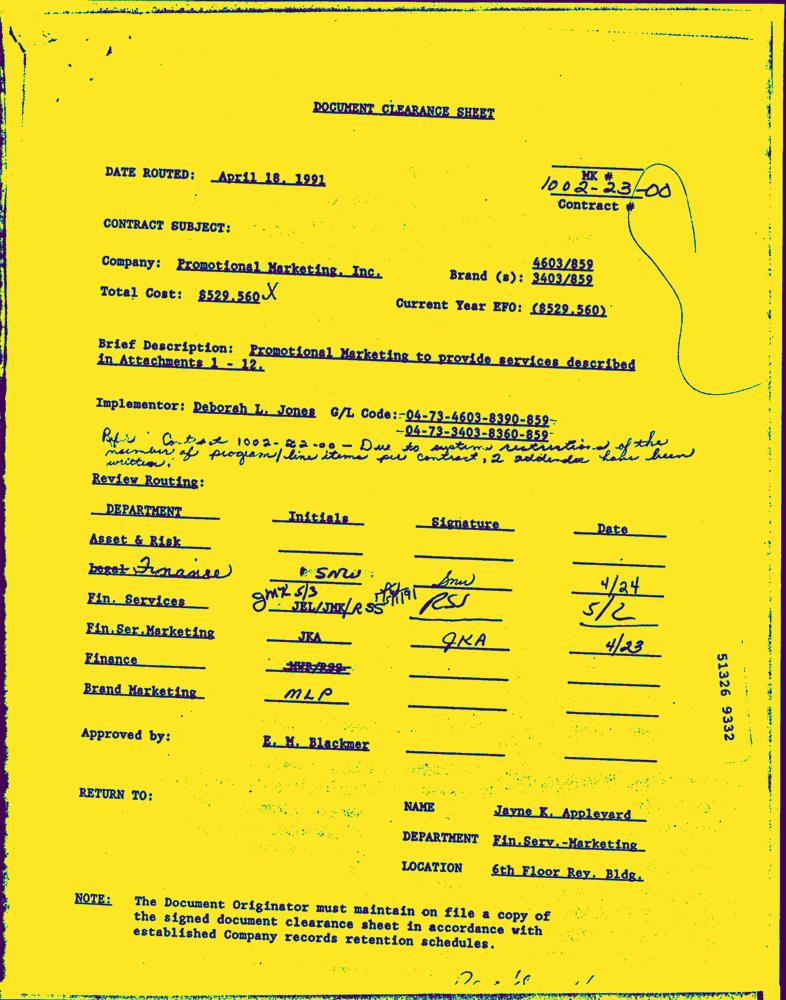 DOCUMENT CLEARANCE SHEET
DATE ROUTED: April 18, 1991
MK #
1002-23-00
Contract #
CONTRACT SUBJECT:
Company: Promotional Marketing, Inc.
Brand (s): 4603/859
3403/859
Total Cost: $529,560 X
Current Year EFO: ($529,560)
Brief Description: Promotional Marketing to provide services described
in Attachments 1 - 12.
Implementor: Deborah L. Jones G/L Code: 04-73-4603-8390-859
04-73-3403-8360-859
Contract 1002-22-00 - Due to system restrictions of the
number of program/line items per contract, 2 addendas have been
written.
Review Routing:
DEPARTMENT Initials Signature Date
Asset & Risk
Legal Finanse SMW smw 4/24
JMK 5/3
Fin. Services JEL/JMK/RSS RSS 5/2
Fin.Ser.Marketing JKA JKA 4/23
Finance MWB/RSS
Brand Marketing MLP
Approved by: E. M. Blackmer
51326 9332
RETURN TO:
NAME Jayne K. Appleyard
DEPARTMENT Fin.Serv.-Marketing
LOCATION 6th Floor Rey. Bldg.
NOTE: The Document Originator must maintain on file a copy of
the signed document clearance sheet in accordance with
established Company records retention schedules.